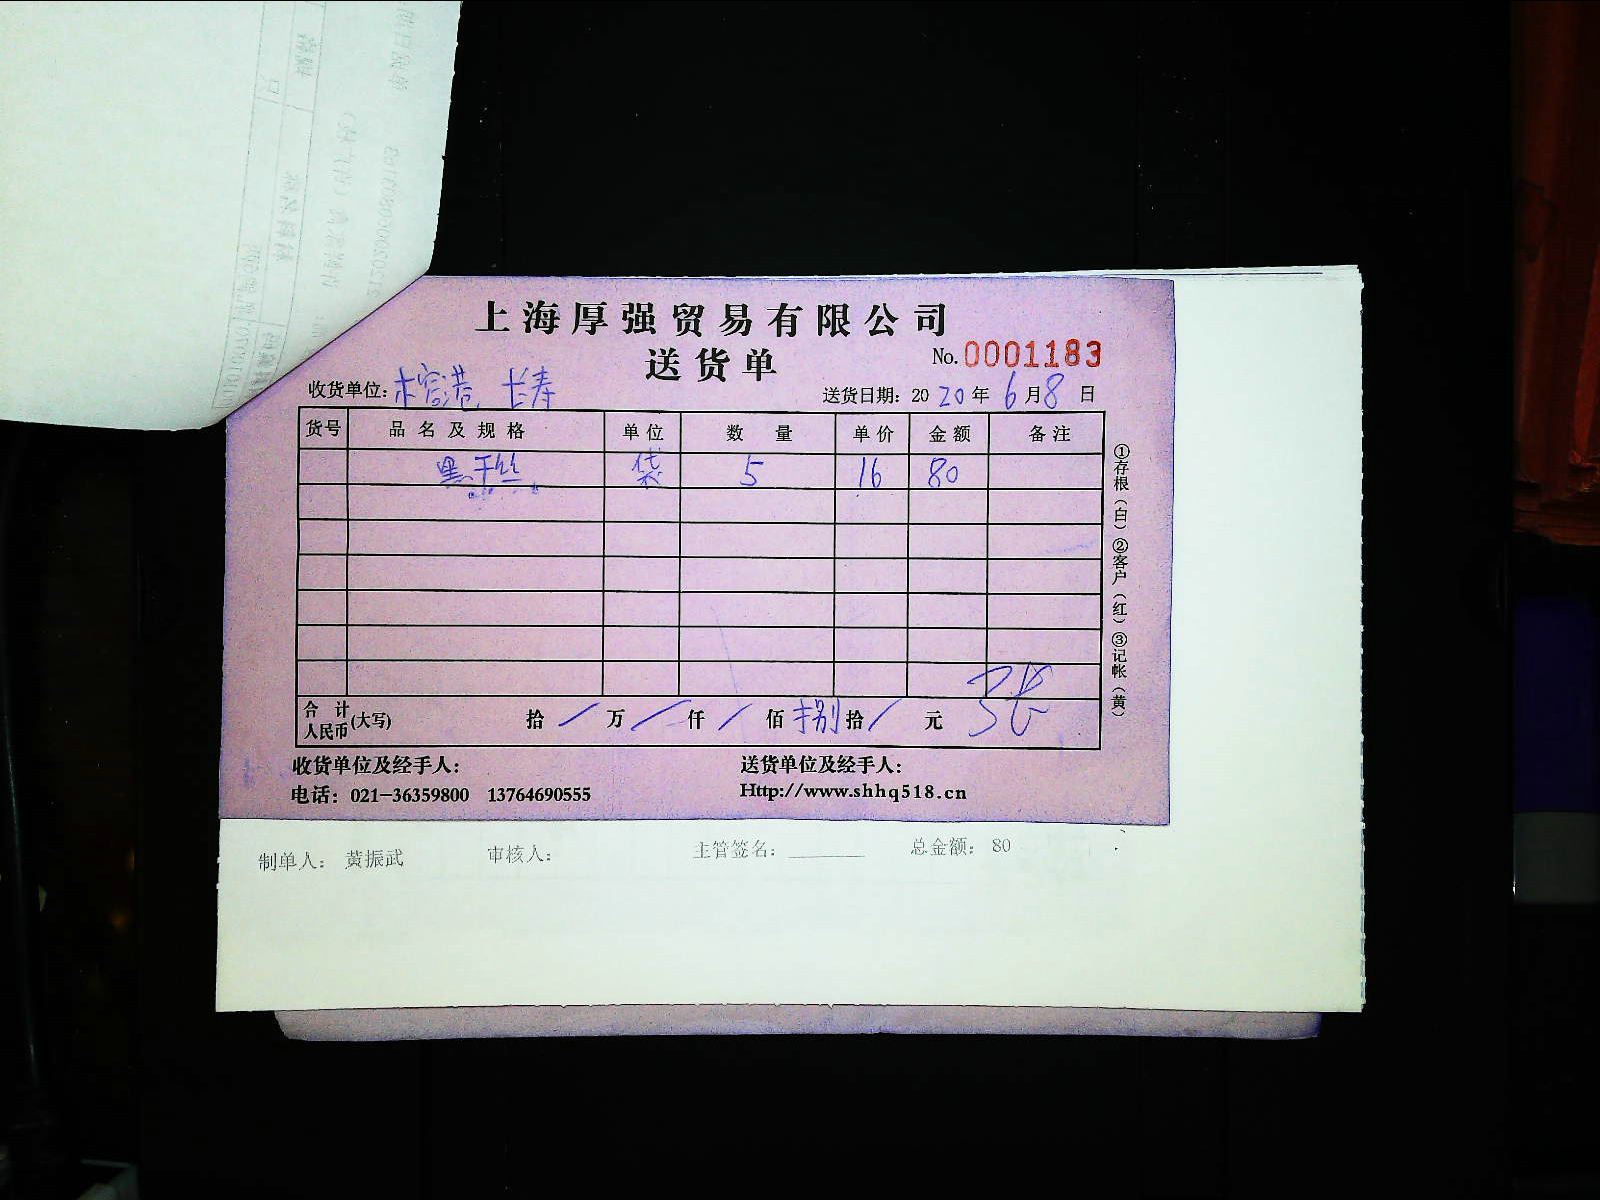 上海厚强贸易有限公司
送货单
No.0001183
收货单位:木客港、长寿
送货日期: 2020年6月8日
货号 品名及规格 单位 数量 单价 金额 备注
黑干丝 袋 5 16 80
合计人民币(大写) 拾/万/仟/佰捌拾/元
收货单位及经手人:
送货单位及经手人:
电话: 021-36359800 13764690555
Http://www.shhq518.cn
①存根(白)②客户(红)③记帐(黄)
制单人: 黄振武 审核人: 主管签名: ________ 总金额: 80